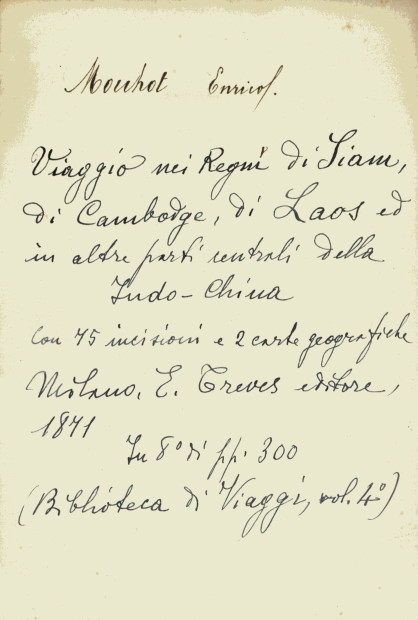 Mouhot Enrico.
Viaggio nei Regni di Siam,
di Cambodge, di Laos ed
in altre parti centrali della
Indo-China
Con 45 incisioni e 2 carte geografiche
Milano, E. Treves editore,
1871
In 8° di pp. 300
(Biblioteca di Viaggi, vol. 4°)